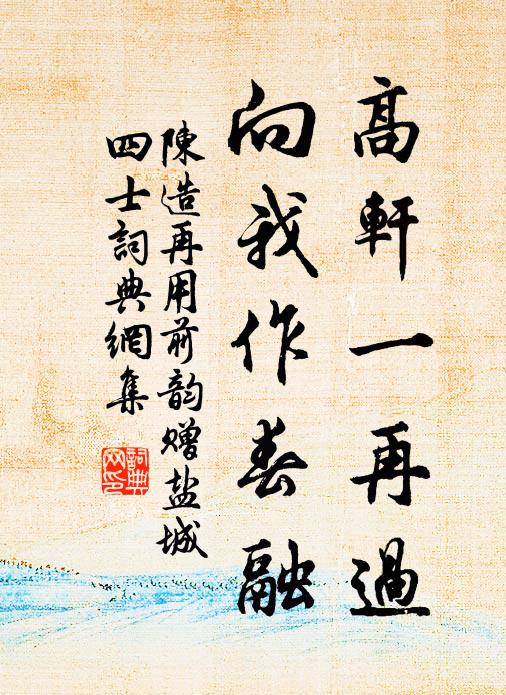 高軒一再過
向我作春融
陳造再用前韵贈盐城
四士詞典網集
詞典
网印